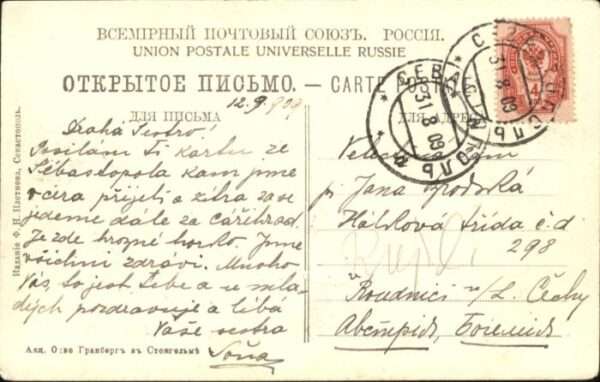 ВСЕМІРНЫЙ ПОЧТОВЫЙ СОЮЗЪ. РОССІЯ.
UNION POSTALE UNIVERSELLE RUSSIE
ОТКРЫТОЕ ПИСЬМО. — CARTE
ДЛЯ ПИСЬМА
ДЛЯ АДРЕСА
12.9.909
Drahá Sestro!
Posílám Ti kartu ze
Sebastopola kam jsme
včera přijeli a zítra zase
jedeme dále za cářihrad.
Je zde hrozné horko. Jsme
všichni zdrávi. Mnoho
Vás, to jest Tebe a u mla-
dých pozdravuje a líbá
Vaše sestra
Soňa
Jana
Hálkova třída č.d
298
Roudnici n/L. Čechy
Австрія, Богемія
СЕВАСТОПОЛЬ
31 8 09
СЕВАСТОПОЛЬ
31 8 09
4
Изданіе Ф. Н. Плотнова, Севастополь.
Акц. О-во Гранбергъ въ Стокгольмѣ